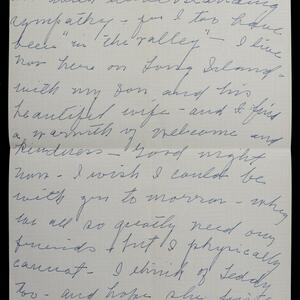 sympathy - yes I too have
been "in "the valley" - I live
now here on Long Island -
with my son and his
beautiful wife - and I find
a warmth of welcome and
kindness - Good night
now - I wish I could be
with you to morrow - why
we all so greatly need our
friends - but I physically
cannot - I think of Teddy
too - and hope she